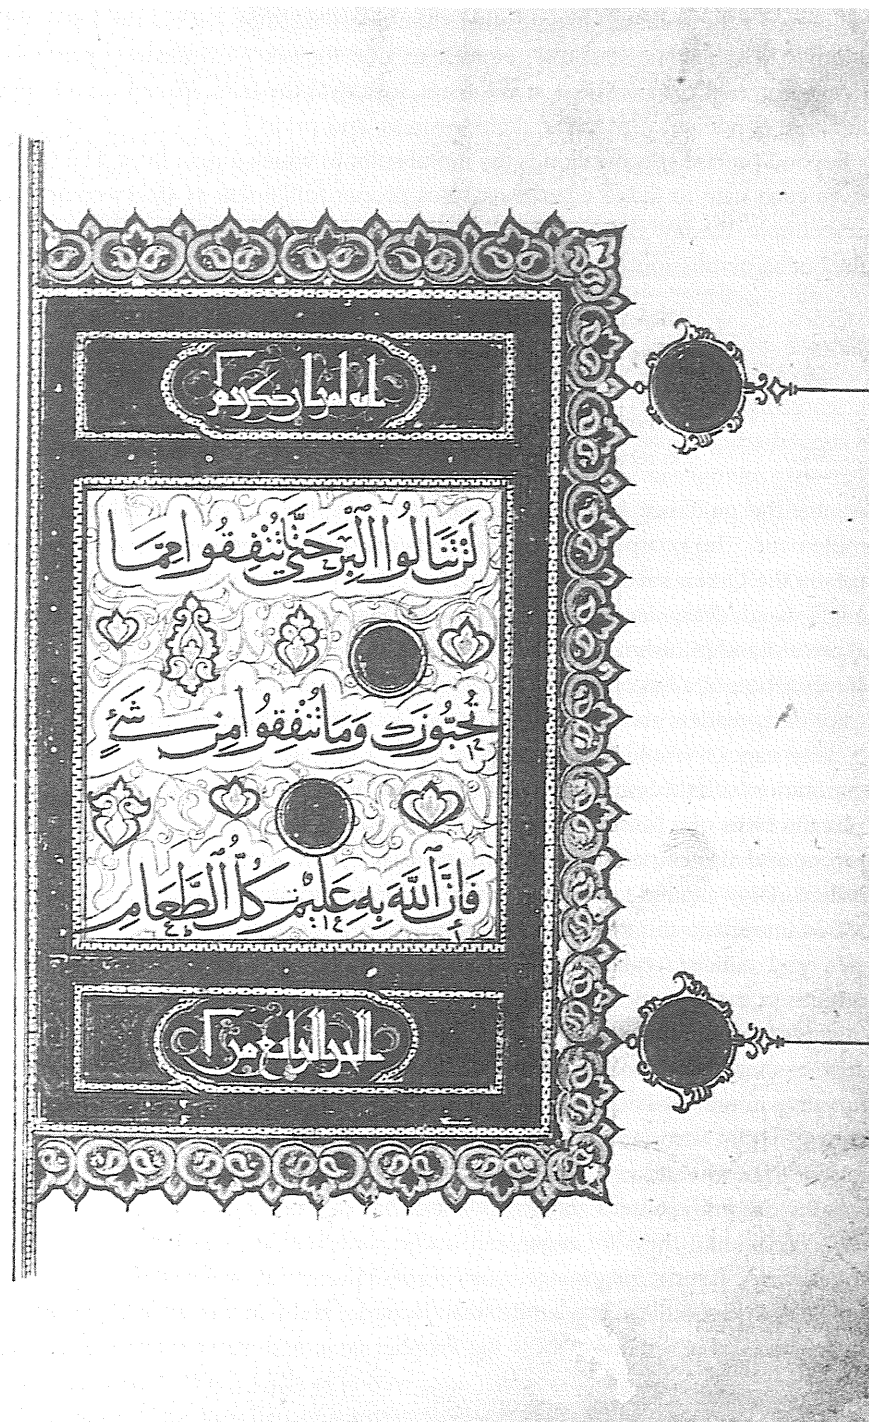 انه لقران كريم
لَن تَنَالُوا الْبِرَّ حَتَّى تُنْفِقُوا مِمَّا
تُحِبُّونَ وَمَا تُنْفِقُوا مِن شَيْءٍ
فَإِنَّ اللَّهَ بِهِ عَلِيمٌ كُلُّ الطَّعَامِ
الجزو الرابع من